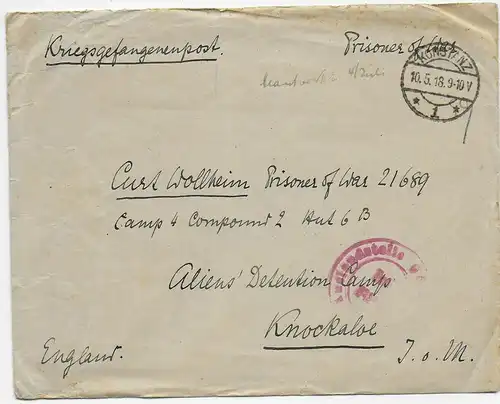 Kriegsgefangenenpost. Prisoner of War
KONSTANZ
10.5.18.9-10 V
* 1 *
beantwortet 4/Juli
Curt Wollheim Prisoner of War 21689
Camp 4 Compound 2 Hut 6 B
Auslandstelle
Aliens' Detention Camp
Knockaloe
England. I.o.M.